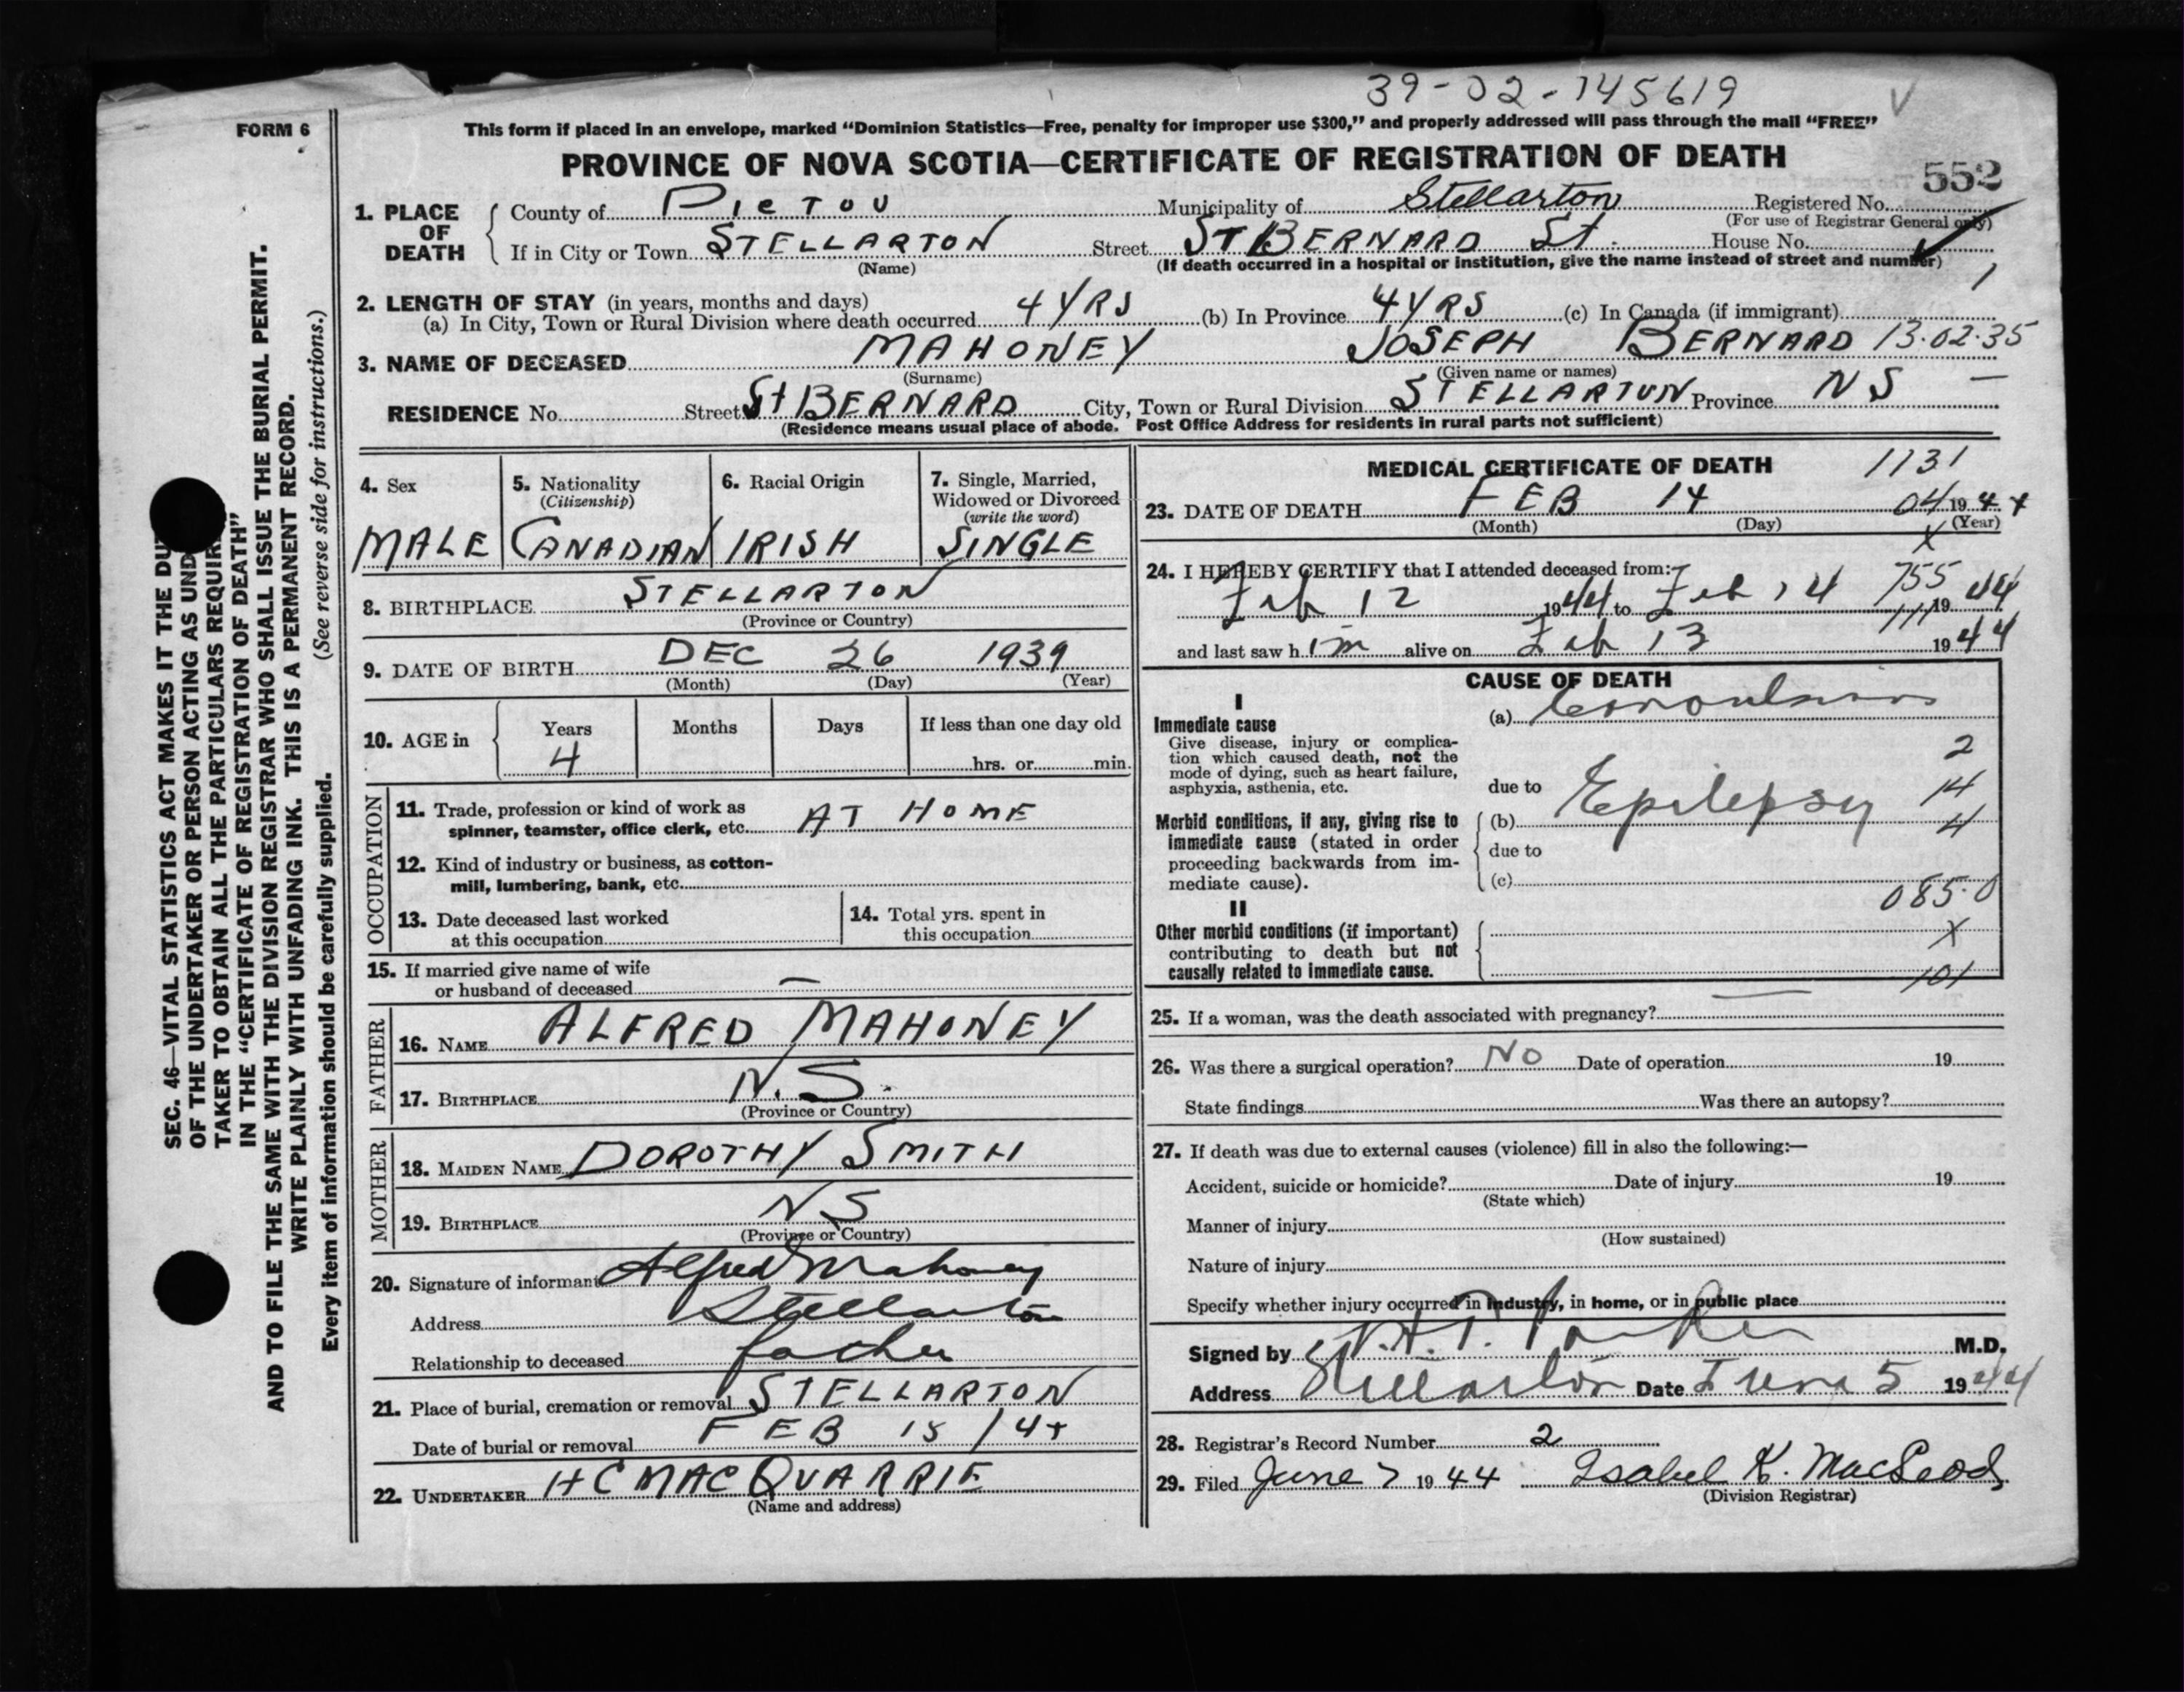 39-02-745619
FORM 6
This form if placed in an envelope, marked “Dominion Statistics—Free, penalty for improper use $300,” and properly addressed will pass through the mail “FREE”
PROVINCE OF NOVA SCOTIA—CERTIFICATE OF REGISTRATION OF DEATH
552
1. PLACE OF DEATH
County of PICTOU Municipality of Stellarton Registered No.
(For use of Registrar General only)
If in City or Town STELLARTON Street ST BERNARD St. House No.
(Name) (If death occurred in a hospital or institution, give the name instead of street and number)
1
2. LENGTH OF STAY (in years, months and days)
(a) In City, Town or Rural Division where death occurred 4 YRS (b) In Province 4 YRS (c) In Canada (if immigrant)
3. NAME OF DECEASED MAHONEY JOSEPH BERNARD 13.02.35
(Surname) (Given name or names)
RESIDENCE No. Street St BERNARD City, Town or Rural Division STELLARTON Province NS —
(Residence means usual place of abode. Post Office Address for residents in rural parts not sufficient)
4. Sex
MALE
5. Nationality
(Citizenship)
CANADIAN
6. Racial Origin
IRISH
7. Single, Married,
Widowed or Divorced
(write the word)
SINGLE
8. BIRTHPLACE STELLARTON
(Province or Country)
9. DATE OF BIRTH DEC 26 1939
(Month) (Day) (Year)
10. AGE in Years Months Days If less than one day old
4 hrs. or min.
OCCUPATION
11. Trade, profession or kind of work as
spinner, teamster, office clerk, etc. AT HOME
12. Kind of industry or business, as cotton-
mill, lumbering, bank, etc.
13. Date deceased last worked
at this occupation
14. Total yrs. spent in
this occupation
15. If married give name of wife
or husband of deceased —
FATHER
16. NAME ALFRED MAHONEY
17. BIRTHPLACE N.S.
(Province or Country)
MOTHER
18. MAIDEN NAME DOROTHY SMITH
19. BIRTHPLACE NS
(Province or Country)
20. Signature of informant Alfred Mahoney
Address Stellarton
Relationship to deceased father
21. Place of burial, cremation or removal STELLARTON
Date of burial or removal FEB 15 / 44
22. UNDERTAKER H C MACQUARRIE
(Name and address)
MEDICAL CERTIFICATE OF DEATH 1131
23. DATE OF DEATH FEB 14 04 1944
(Month) (Day) (Year)
X
24. I HEREBY CERTIFY that I attended deceased from:
755
Feb 12 1944 to Feb 14 1944
111
and last saw him alive on Feb 13 1944
CAUSE OF DEATH
I
Immediate cause
Give disease, injury or complica-
tion which caused death, not the
mode of dying, such as heart failure,
asphyxia, asthenia, etc.
(a) Convulsions
2
due to
14
Morbid conditions, if any, giving rise to
immediate cause (stated in order
proceeding backwards from im-
mediate cause).
(b) Epilepsy
4
due to
(c)
085.0
II
Other morbid conditions (if important)
contributing to death but not
causally related to immediate cause.
X
101
25. If a woman, was the death associated with pregnancy? —
26. Was there a surgical operation? No Date of operation 19
State findings Was there an autopsy?
27. If death was due to external causes (violence) fill in also the following:—
Accident, suicide or homicide? Date of injury 19
(State which)
Manner of injury
(How sustained)
Nature of injury
Specify whether injury occurred in industry, in home, or in public place
Signed by Parker M.D.
Address Stellarton Date June 5 1944
28. Registrar's Record Number 2
29. Filed June 7 1944 Isabel K. MacLeod
(Division Registrar)
SEC. 46—VITAL STATISTICS ACT MAKES IT THE DU
OF THE UNDERTAKER OR PERSON ACTING AS UND
TAKER TO OBTAIN ALL THE PARTICULARS REQUIR
IN THE “CERTIFICATE OF REGISTRATION OF DEATH”
AND TO FILE THE SAME WITH THE DIVISION REGISTRAR WHO SHALL ISSUE THE BURIAL PERMIT.
WRITE PLAINLY WITH UNFADING INK. THIS IS A PERMANENT RECORD.
(See reverse side for instructions.)
Every item of information should be carefully supplied.